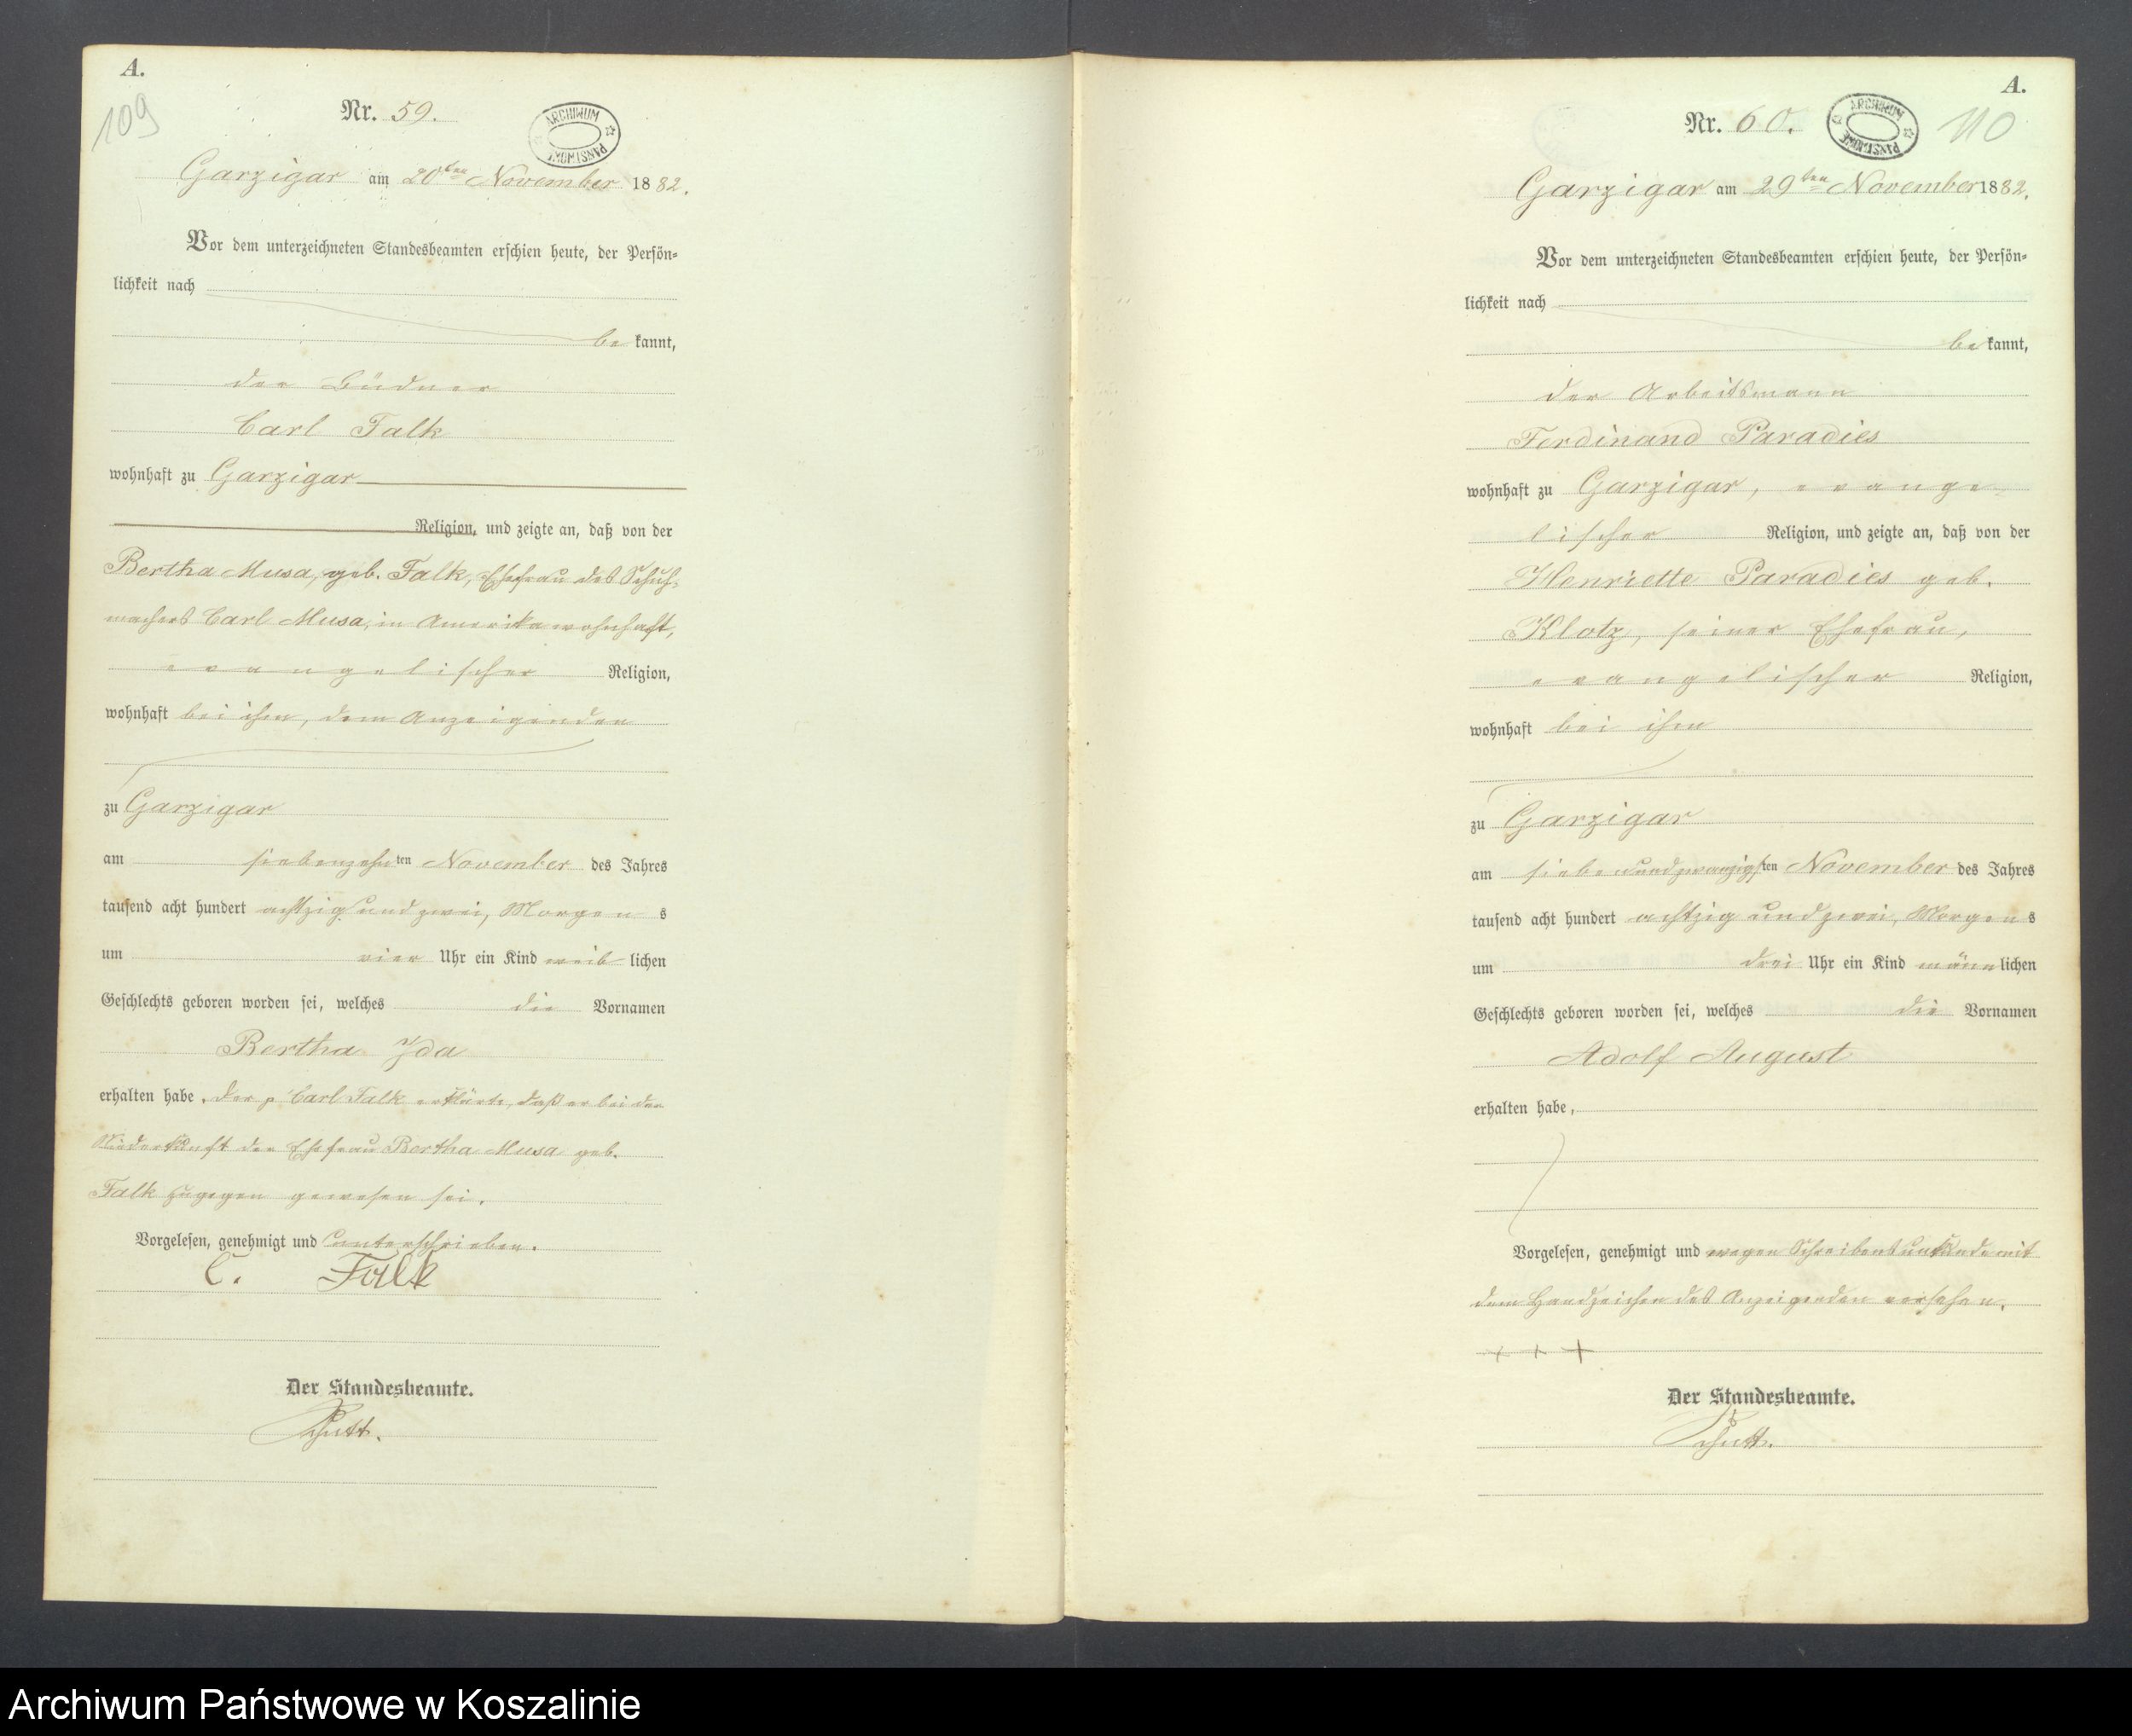 A.
109
Nr. 59.
ARCHIWUM PAŃSTWOWE
Garzigar am 20ten November 1882.
Vor dem unterzeichneten Standesbeamten erschien heute, der Persön-
lichkeit nach
be kannt,
der Büdner
Carl Falk
wohnhaft zu Garzigar
Religion, und zeigte an, daß von der
Bertha Musa, geb. Falk, Ehefrau des Schuh-
machers Carl Musa, in Amerika wohnhaft,
evangelischer Religion,
wohnhaft bei ihm, dem Anzeigenden
zu Garzigar
am siebenzehnten November des Jahres
tausend acht hundert achtzig und zwei, Morgens
um vier Uhr ein Kind weiblichen
Geschlechts geboren worden sei, welches die Vornamen
Bertha Ida
erhalten habe. Der p Carl Falk erklärte, daß er bei der
Niederkunft der Ehefrau Bertha Musa geb.
Falk zugegen gewesen sei.
Vorgelesen, genehmigt und unterschrieben.
C. Falk
Der Standesbeamte.
Schutt.
A.
Nr. 60.
ARCHIWUM PAŃSTWOWE
110
Garzigar am 29ten November 1882.
Vor dem unterzeichneten Standesbeamten erschien heute, der Persön-
lichkeit nach
be kannt,
der Arbeitsmann
Ferdinand Paradies
wohnhaft zu Garzigar, evange-
lischer Religion, und zeigte an, daß von der
Henriette Paradies geb.
Klotz, seiner Ehefrau,
evangelischer Religion,
wohnhaft bei ihm
zu Garzigar
am siebenundzwanzigsten November des Jahres
tausend acht hundert achtzig und zwei, Morgens
um drei Uhr ein Kind männlichen
Geschlechts geboren worden sei, welches die Vornamen
Adolf August
erhalten habe,
Vorgelesen, genehmigt und wegen Schreibensunkunde mit
dem Handzeichen des Anzeigenden versehen.
+ + +
Der Standesbeamte.
Schutt.
Archiwum Państwowe w Koszalinie